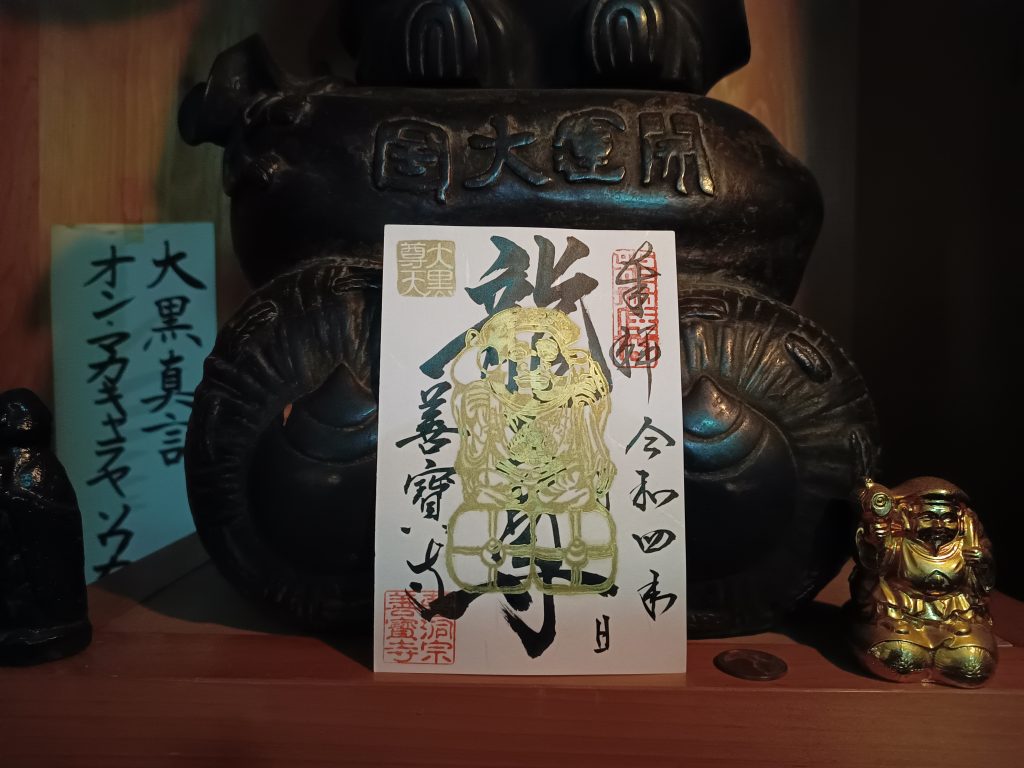 開運大国
大黒真言
オン・マカキャラヤソワカ
奉拝
令和四年
日
龍
大黒
尊天
善寳寺
曹洞宗
善寳寺